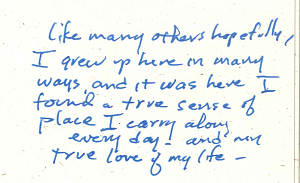 like many others hopefully,
I grew up here in many
ways, and it was here I
found a true sense of
place I carry along
every day - and my
true love of my life -